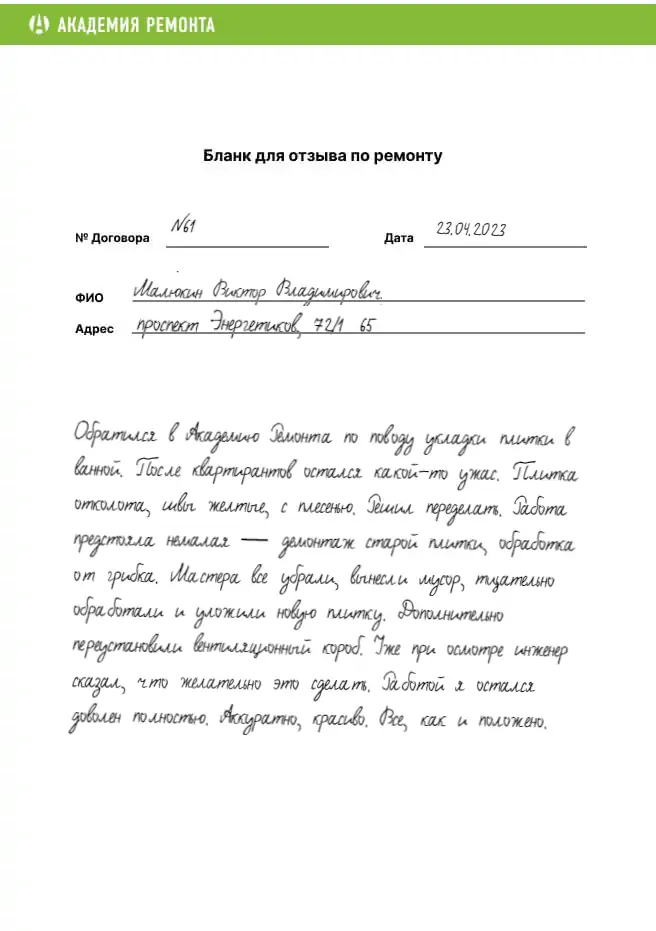 АКАДЕМИЯ РЕМОНТА
Бланк для отзыва по ремонту
№ Договора N61 Дата 23.04.2023
ФИО Малюкин Виктор Владимирович
Адрес проспект Энергетиков, 72/1 65
Обратился в Академию Ремонта по поводу укладки плитки в
ванной. После квартирантов остался какой-то ужас. Плитка
отколота, швы желтые, с плесенью. Решил переделать. Работа
предстояла немалая — демонтаж старой плитки, обработка
от грибка. Мастера все убрали, вынесли мусор, тщательно
обработали и уложили новую плитку. Дополнительно
переустановили вентиляционный короб. Уже при осмотре инженер
сказал, что желательно это сделать. Работой я остался
доволен полностью. Аккуратно, красиво. Все, как и положено.